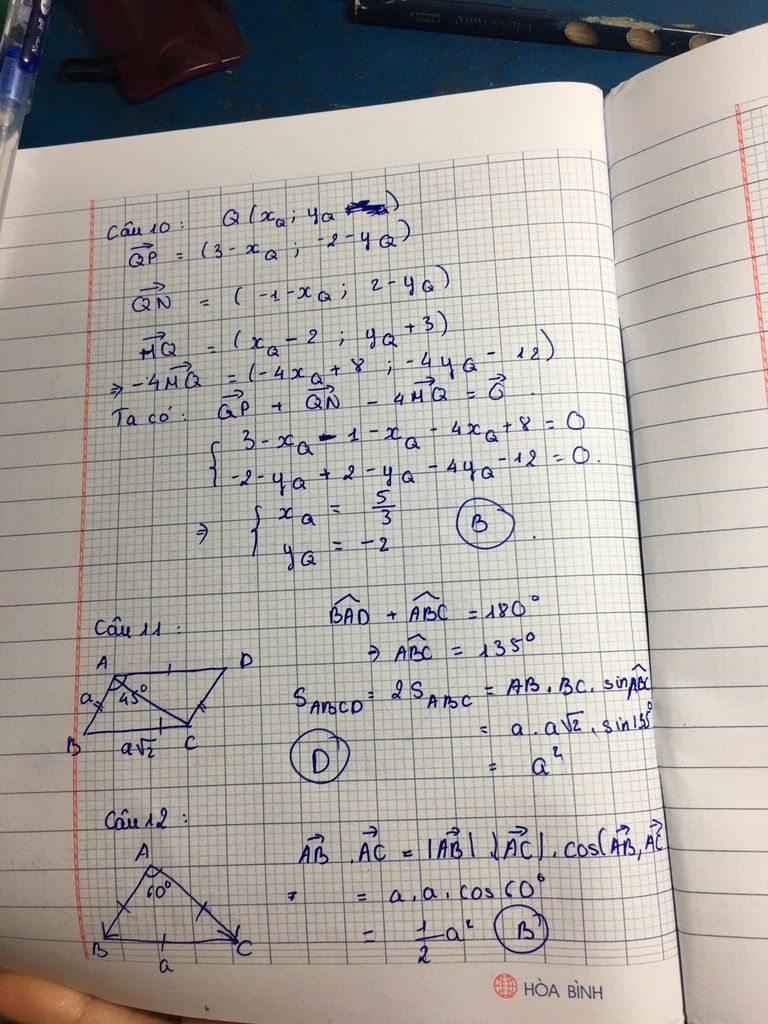 Câu 10 : Q (x_Q ; y_Q )
\overrightarrow{QP} = (3 - x_Q ; -2 - y_Q)
\overrightarrow{QN} = ( -1 - x_Q ; 2 - y_Q )
\overrightarrow{MQ} = (x_Q - 2 ; y_Q + 3 )
⇒ -4\overrightarrow{MQ} = (-4x_Q + 8 ; -4y_Q - 12 )
Ta có : \overrightarrow{QP} + \overrightarrow{QN} - 4\overrightarrow{MQ} = \overrightarrow{0} .
{ 3 - x_Q - 1 - x_Q - 4x_Q + 8 = 0
-2 - y_Q + 2 - y_Q - 4y_Q - 12 = 0 .
⇒ { x_Q = 5/3
y_Q = -2 B .
Câu 11 : \widehat{BAD} + \widehat{ABC} = 180°
⇒ \widehat{ABC} = 135°
A D
a 45°
B a√2 C
S_{ABCD} = 2 S_{ABC} = AB . BC . sin\widehat{ABC}
= a . a√2 . sin 135°
D = a²
Câu 12 :
A
60°
B C
a
\overrightarrow{AB} . \overrightarrow{AC} = |\overrightarrow{AB}| . |\overrightarrow{AC}| . cos(\overrightarrow{AB}, \overrightarrow{AC}
= a . a . cos 60°
= 1/2 a² B
HÒA BÌNH